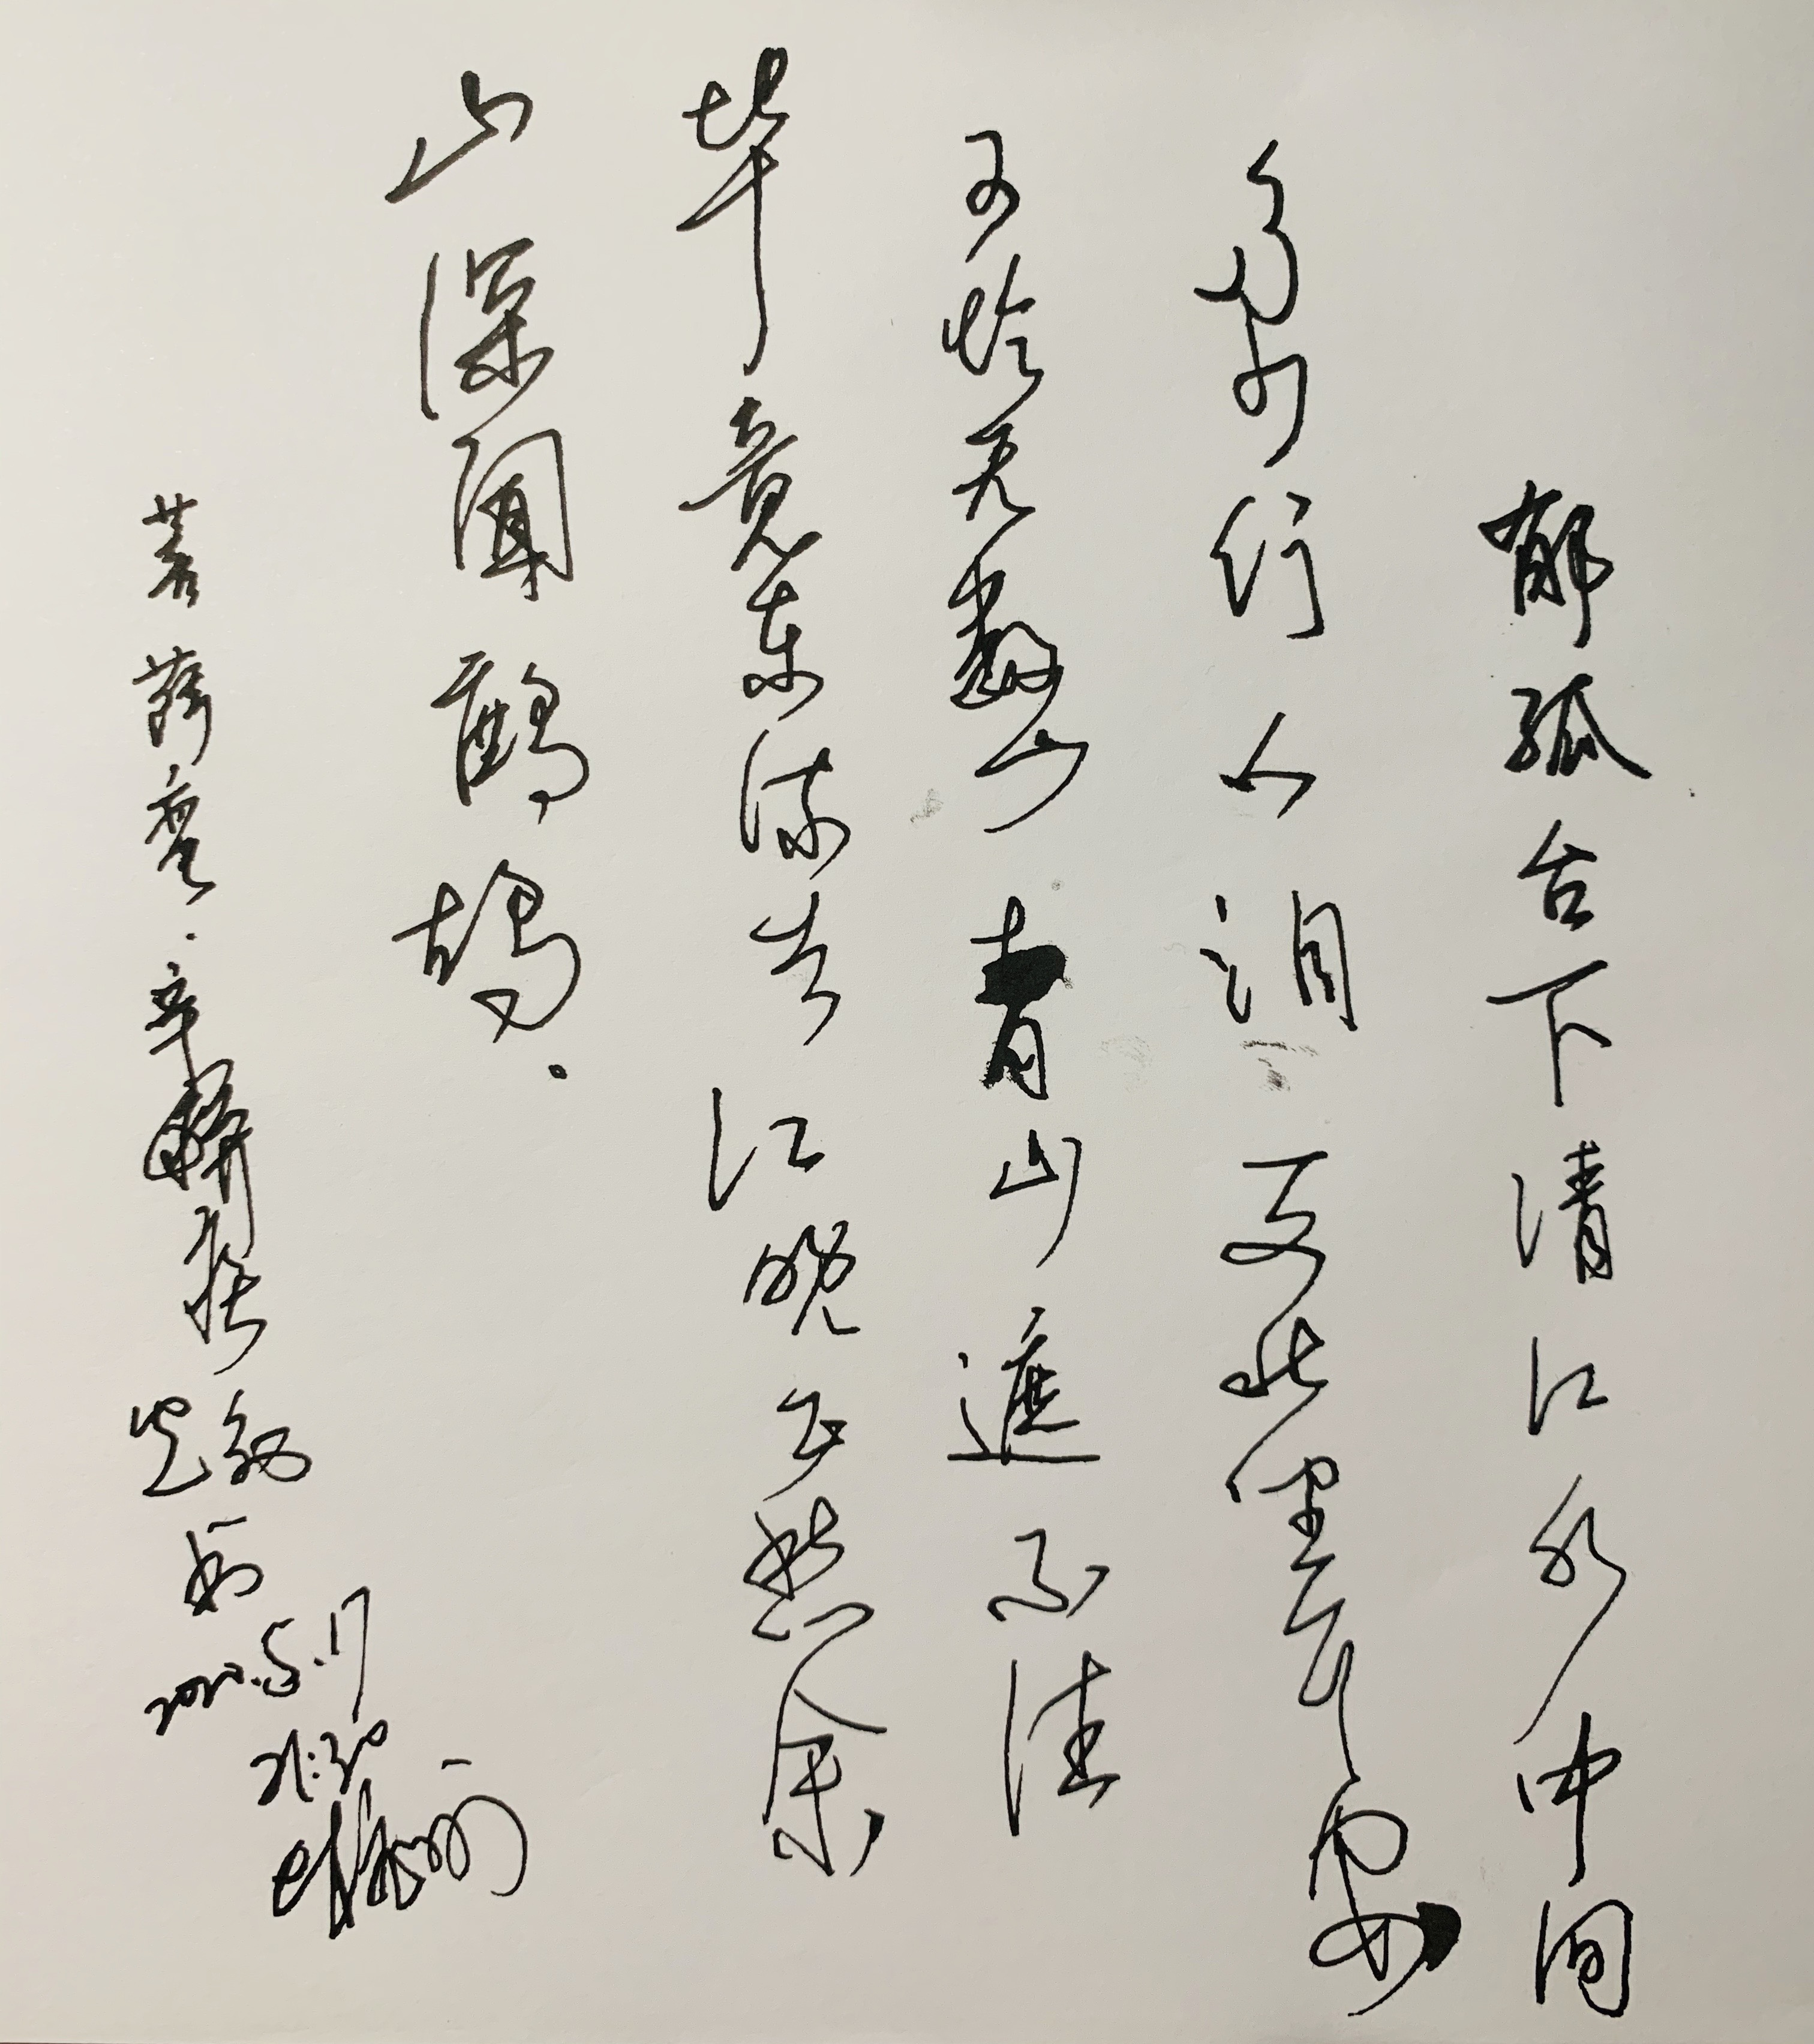 郁孤台下清江水中间
多少行人泪 西北望长安
可怜无数山 青山遮不住
毕竟东流去 江晚正愁余
山深闻鹧鸪.
菩萨蛮·辛
2020.5.17
21:30